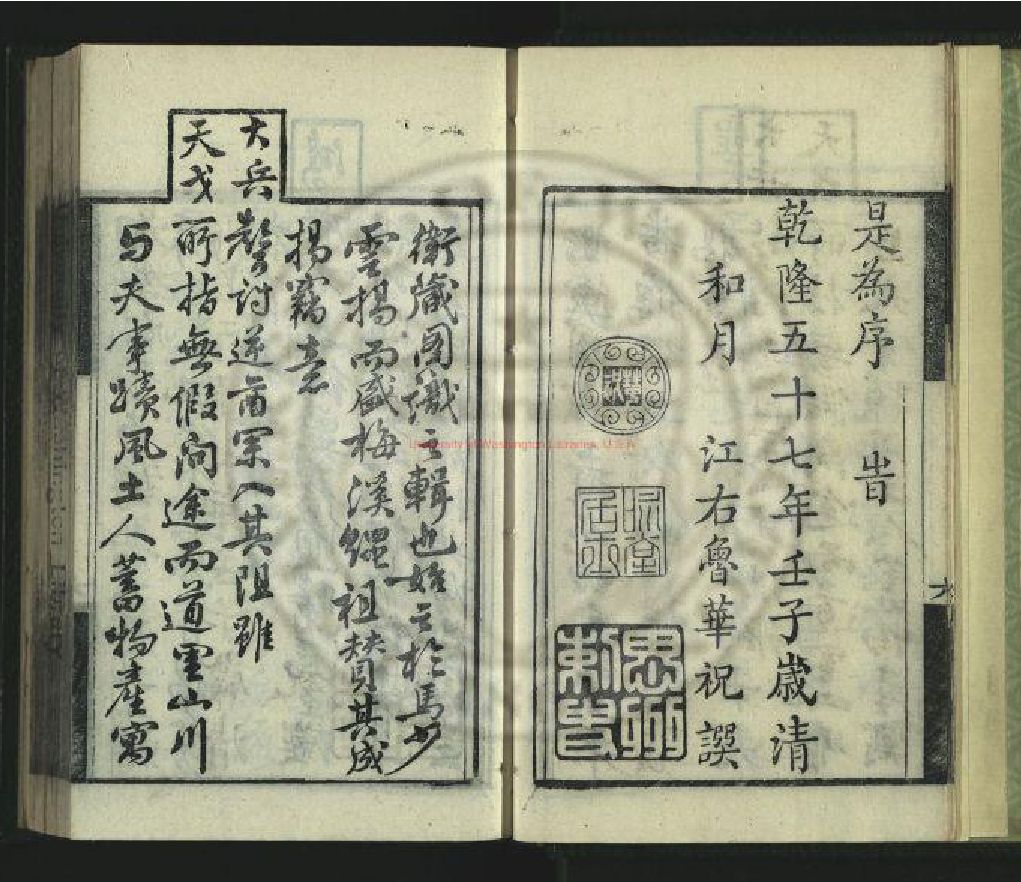 是為序 旹
乾隆五十七年壬子歲清
和月 江右魯華祝譔
華祝
思州刺史
衛藏圖識之輯也始之於馬少
雲揚而盛梅溪繩祖贊其成
揚竊意
大兵聲討逆酋罙入其阻雖
天戈所指無假問途而道里山川
与夫事蹟風土人蓄物產寓
University of Washington Libraries